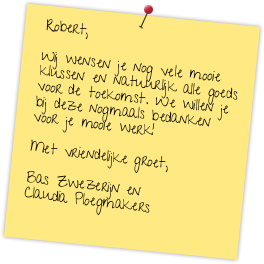 Robert,
Wij wensen je nog vele mooie
klussen en natuurlijk alle goeds
voor de toekomst. We willen je
bij deze nogmaals bedanken
voor je mooie werk!
Met vriendelijke groet,
Bas Zwezerijn en
Claudia Ploegmakers